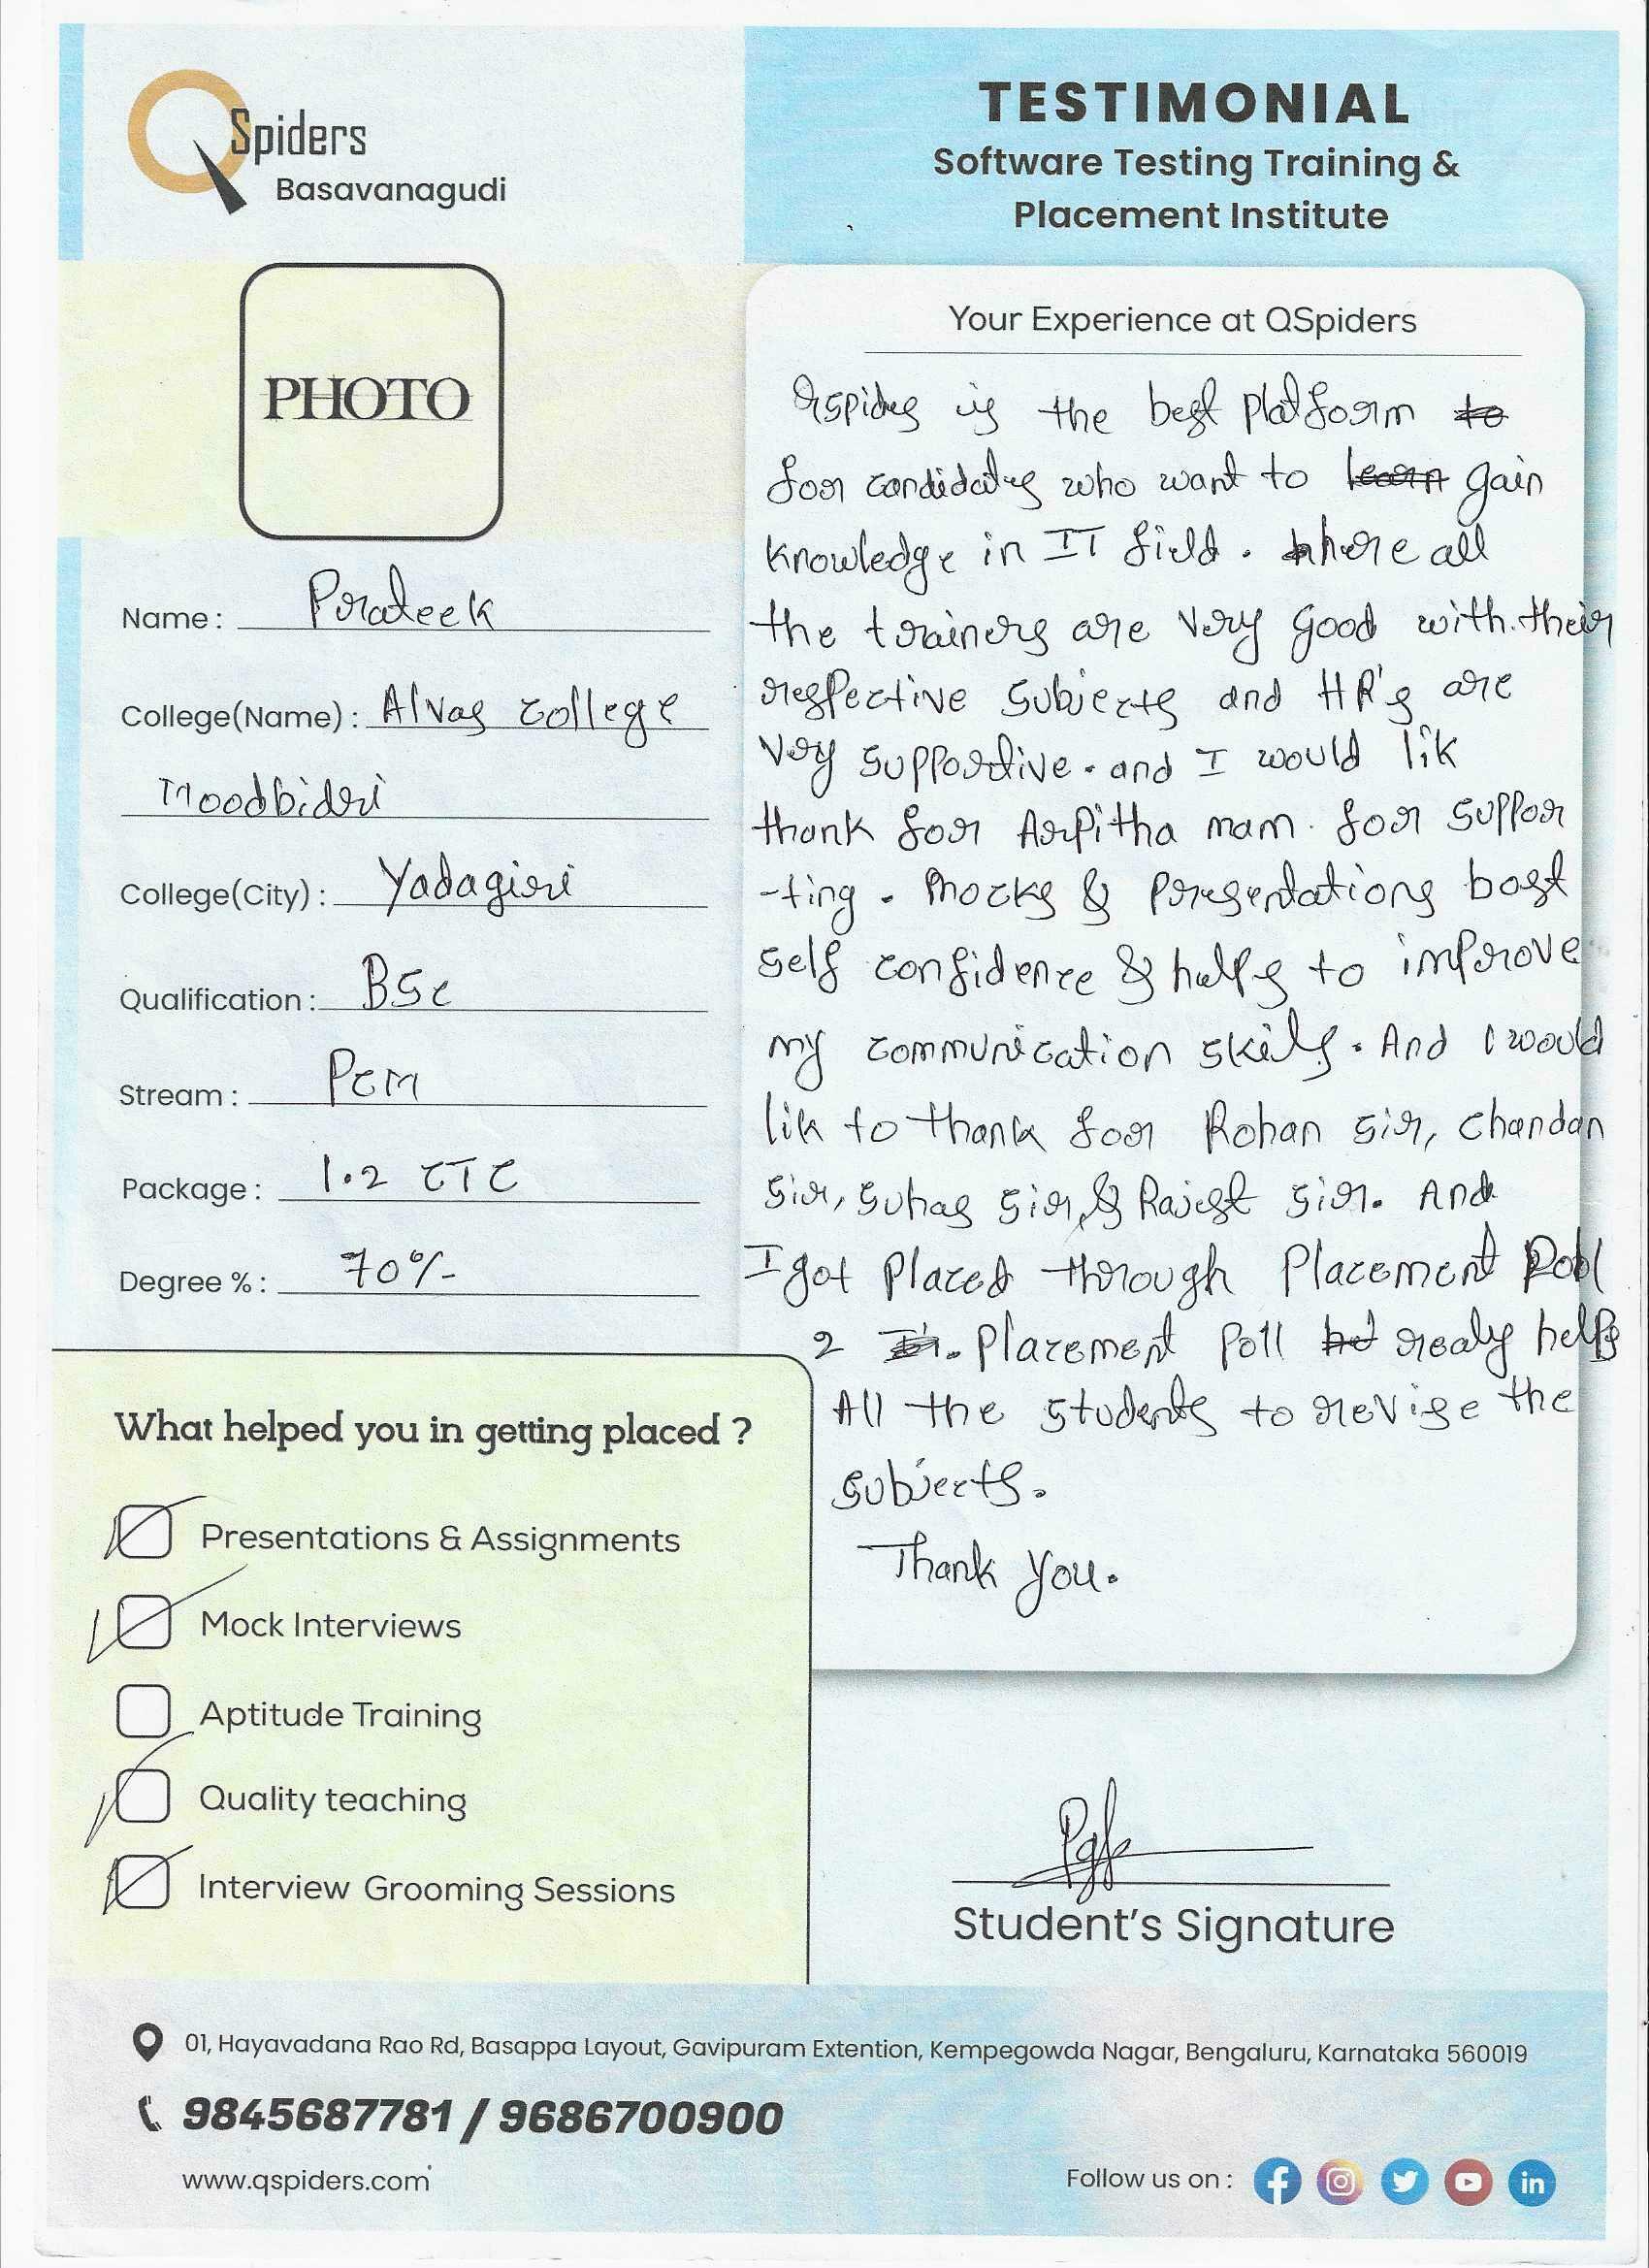 QSpiders
Basavanagudi
TESTIMONIAL
Software Testing Training &
Placement Institute
PHOTO
Name : Prateek
College(Name) : Alvas college
Moodbidri
College(City) : Yadagiri
Qualification : BSc
Stream : PCM
Package : 1.2 CTC
Degree % : 70%
Your Experience at QSpiders
Qspides is the best platform to
for candidates who want to learn gain
knowledge in IT field. here all
the trainers are very good with their
respective subjects and HR's are
very supportive. and I would lik
thank for Arpitha mam. for suppor
-ting. Mocks & presentations bost
self confidence & helps to improve
my communication skills. And I would
lik to thank for Rohan sir, chandan
sir, suhas sir, & Rajest sir. And
I got placed through Placement Poll
2 Placement poll realy helps
All the students to revise the
subjects.
Thank you.
What helped you in getting placed ?
Presentations & Assignments
Mock Interviews
Aptitude Training
Quality teaching
Interview Grooming Sessions
Student's Signature
01, Hayavadana Rao Rd, Basappa Layout, Gavipuram Extention, Kempegowda Nagar, Bengaluru, Karnataka 560019
9845687781 / 9686700900
www.qspiders.com
Follow us on :